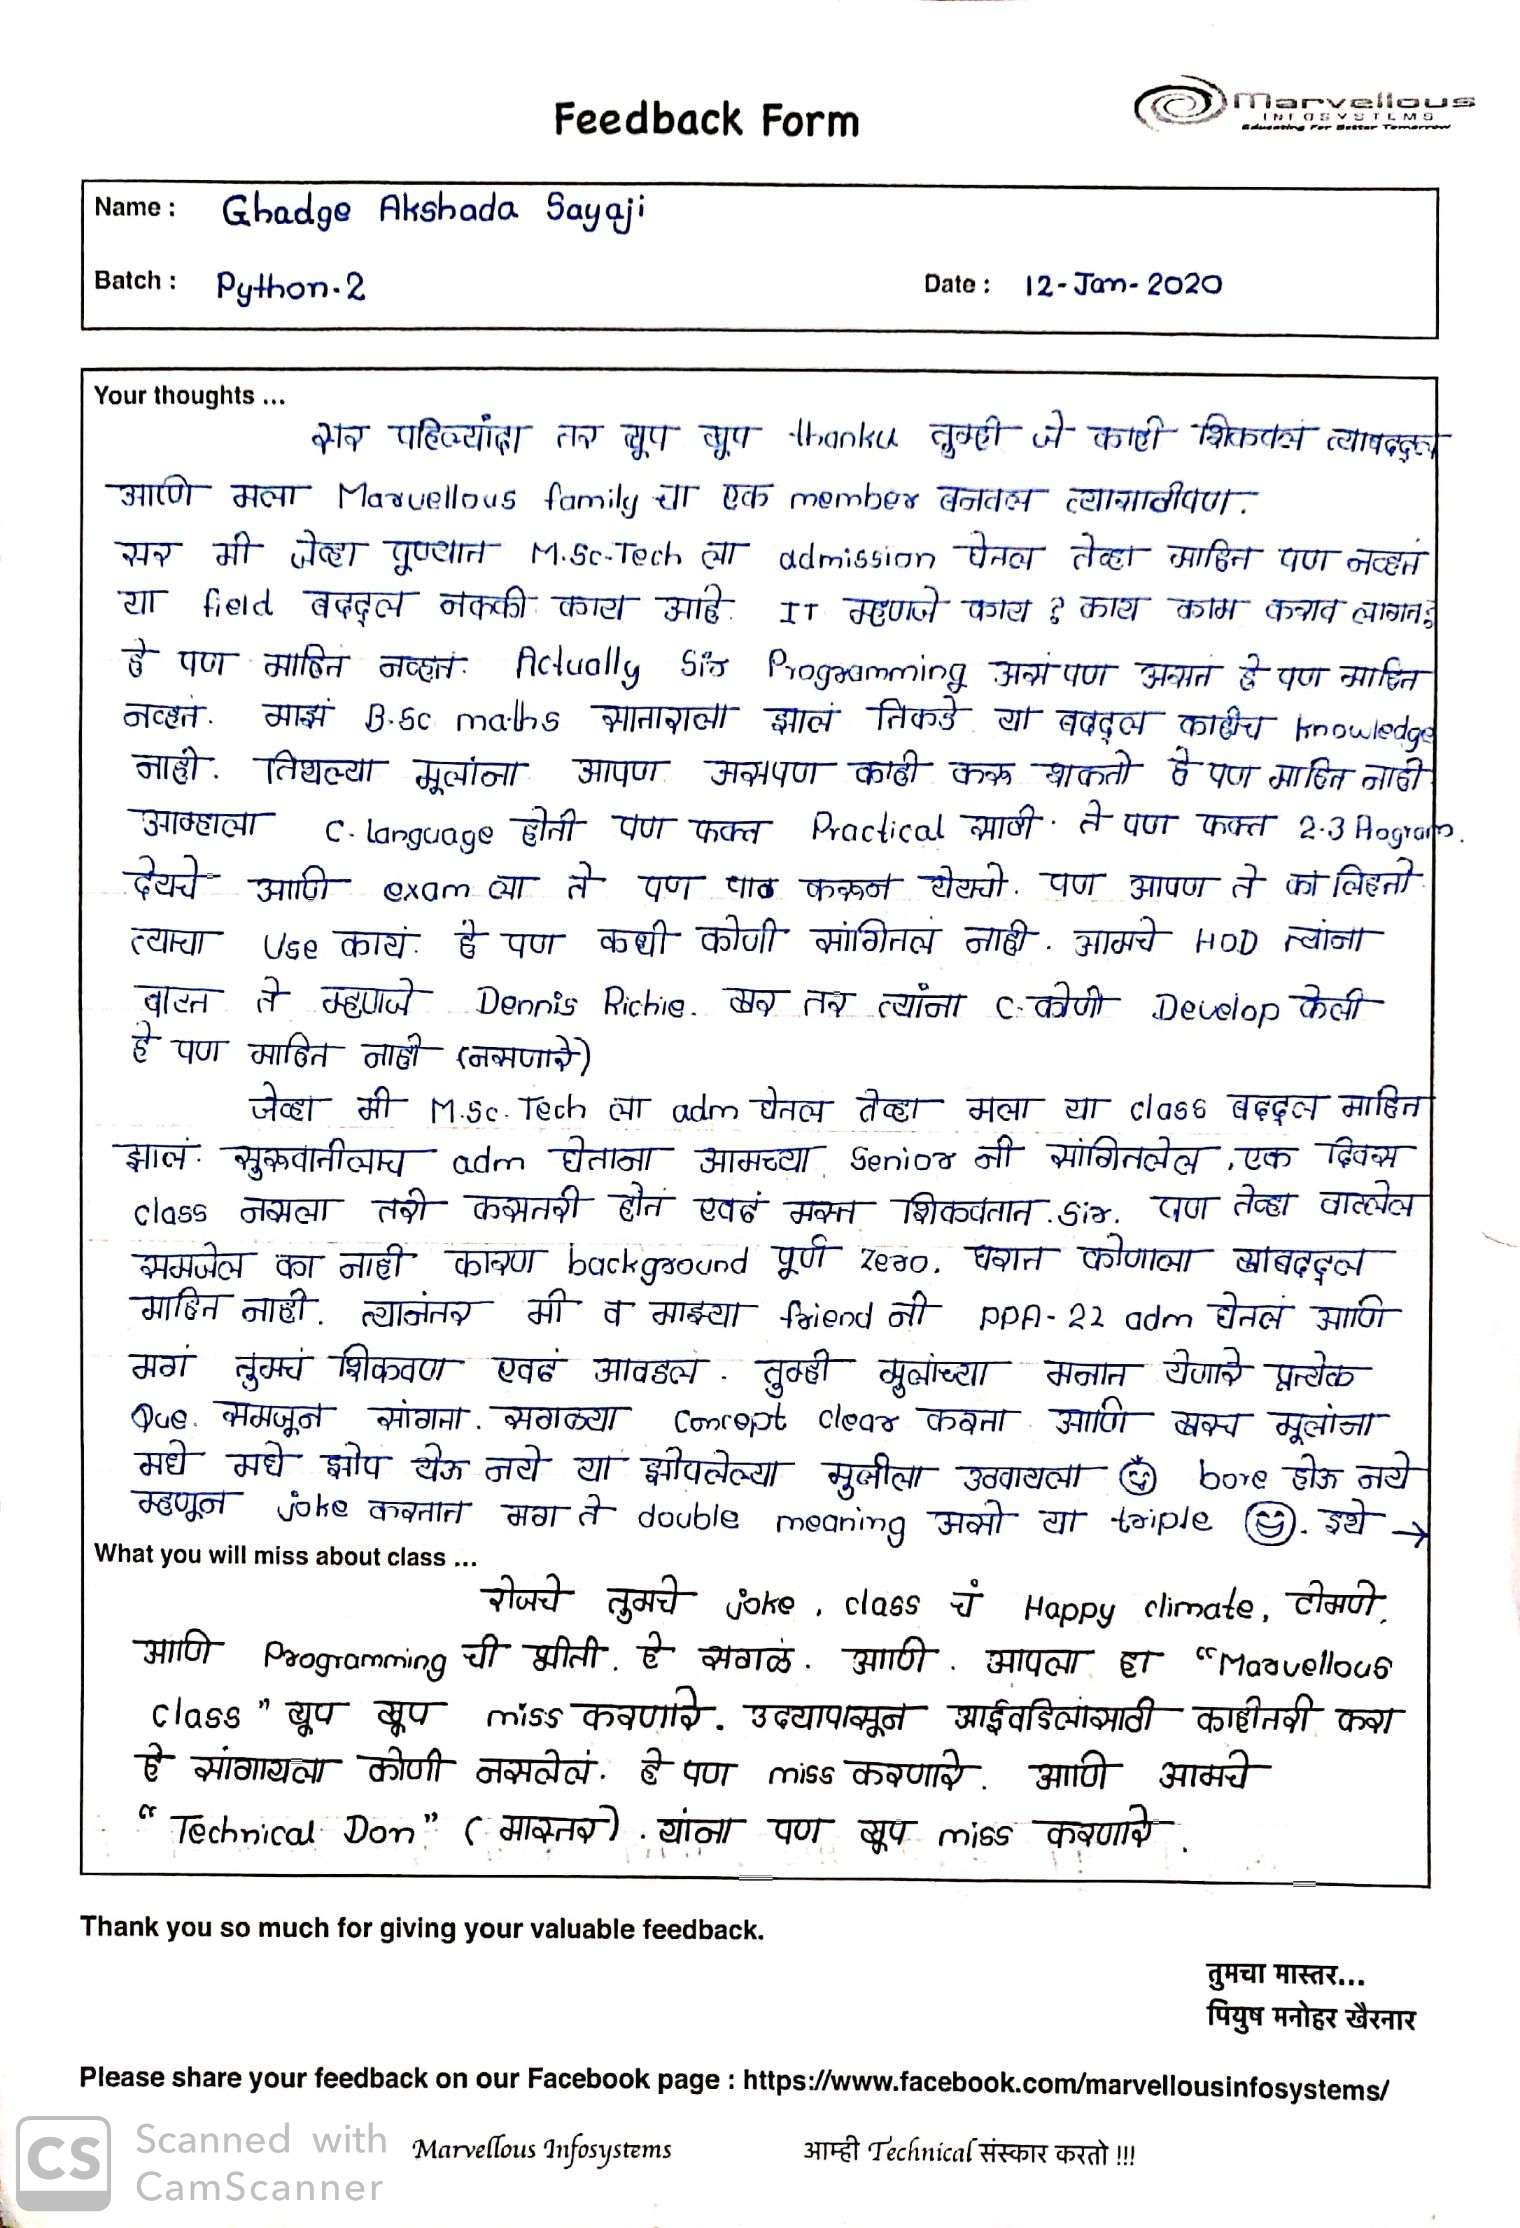 Feedback Form
Marvellous
INFOSYSTEMS
Educating For Better Tomorrow
Name : Ghadge Akshada Sayaji
Batch : Python-2 Date : 12-Jan-2020
Your thoughts ...
सर पहिल्यांदा तर खूप खूप thanku तुम्ही जे काही शिकवलं त्याबद्दल
आणि मला Marvellous family चा एक member बनवल त्यासाठीपण.
सर मी जेव्हा पुण्यात M.Sc-Tech ला admission घेतल तेव्हा माहित पण नव्हतं
या field बद्दल नक्की काय आहे. IT म्हणजे काय ? काय काम कराव लागत?
हे पण माहित नव्हतं. Actually Sir Programming असं पण असतं हे पण माहित
नव्हतं. माझं B.Sc maths साताराला झालं तिकडे या बद्दल काहीच knowledge
नाही. तिथल्या मूलांना आपण असपण काही करू शकतो हे पण माहित नाही
आम्हाला C-language होती पण फक्त Practical साठी. ते पण फक्त 2-3 Program.
देयचे आणि exam ला ते पण पाठ करून येयचो. पण आपण ते का लिहतो
त्याचा Use काय. हे पण कधी कोणी सांगितलं नाही. आमचे HOD त्यांना
वाटत ते म्हणजे Dennis Richie. खर तर त्यांना C-कोणी Develop केली
हे पण माहित नाही (नसणारे)
जेव्हा मी M.Sc. Tech ला adm घेतल तेव्हा मला या class बद्दल माहित
झालं. सुरूवातीलाच adm घेताना आमच्या Senior नी सांगितलेल, एक दिवस
class नसला तरी कसतरी होतं एवढं मस्त शिकवतात Sir. पण तेव्हा वाटलेल
समजेल का नाही कारण background पूर्ण zero. घरात कोणाला याबद्दल
माहित नाही. त्यानंतर मी व माझ्या friend नी PPA-22 adm घेतलं आणि
मग तुमचं शिकवण एवढं आवडलं. तुम्ही मुलांच्या मनात येणारे प्रत्येक
Que. समजून सांगता. सगळ्या Concept clear करता आणि मूलांना
मधे मधे झोप येऊ नये या झोपलेल्या मुलीला उठवायला 😊 bore होऊ नये
म्हणून joke करतात मग ते double meaning असो या triple 😊. इथे →
What you will miss about class ...
रोजचे तुमचे joke, class चं Happy climate, टोमणे,
आणि Programming ची भीती. हे सगळं. आणि. आपला हा “Marvellous
class” खूप खूप miss करणारे. उदयापासून आईवडिलांसाठी काहीतरी करा
हे सांगायला कोणी नसलेलं. हे पण miss करणारे. आणि आमचे
“Technical Don” (मास्तर). यांना पण खूप miss करणारे.
Thank you so much for giving your valuable feedback.
तुमचा मास्तर...
पियुष मनोहर खैरनार
Please share your feedback on our Facebook page : https://www.facebook.com/marvellousinfosystems/
CS Scanned with CamScanner
Marvellous Infosystems आम्ही Technical संस्कार करतो !!!